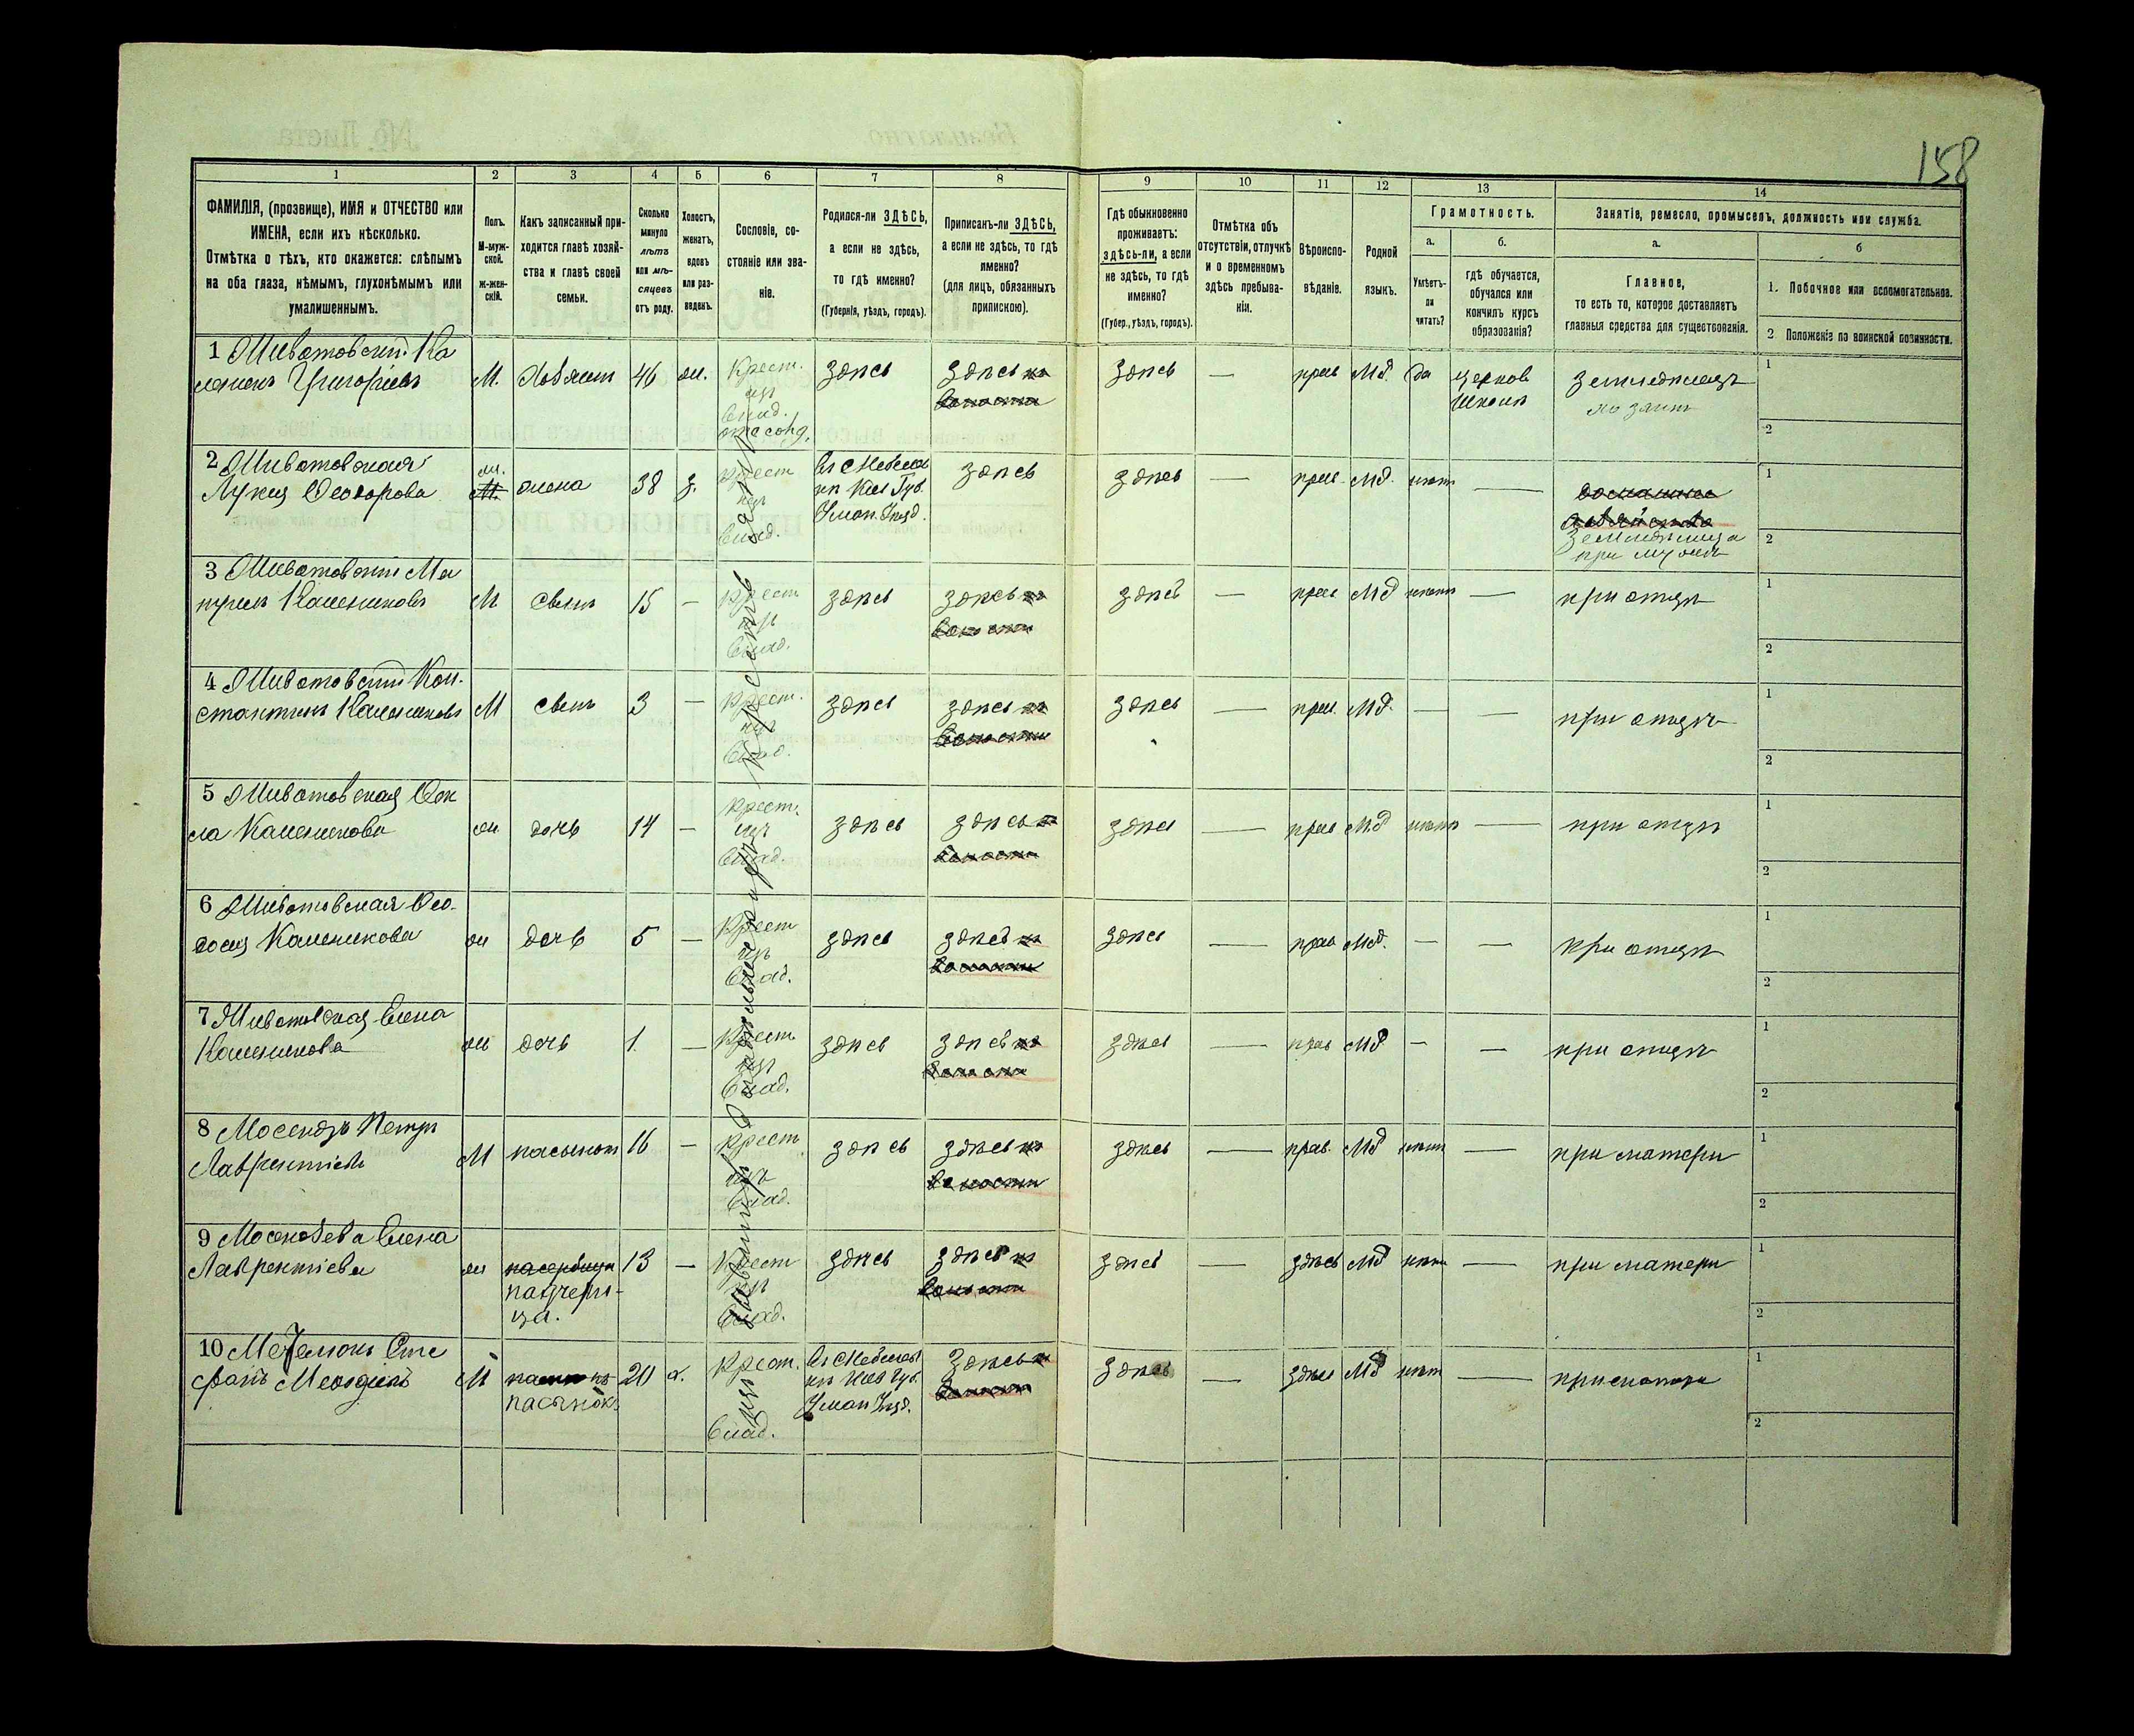 158
1 2 3 4 5 6 7 8 9 10 11 12 13 14
ФАМИЛІЯ, (прозвище), ИМЯ и ОТЧЕСТВО или
ИМЕНА, если ихъ нѣсколько.
Отмѣтка о тѣхъ, кто окажется: слѣпымъ
на оба глаза, нѣмымъ, глухонѣмымъ или
умалишеннымъ.
Полъ.
М-муж-
ской.
Ж-жен-
скій.
Какъ записанный при-
ходится главѣ хозяй-
ства и главѣ своей
семьи.
Сколько
минуло
лѣтъ
или мѣ-
сяцевъ
отъ роду.
Холостъ,
женатъ,
вдовъ
или раз-
веденъ.
Сословіе, со-
стояніе или зва-
ніе.
Родился-ли ЗДѢСЬ,
а если не здѣсь,
то гдѣ именно?
(Губернія, уѣздъ, городъ).
Приписанъ-ли ЗДѢСЬ,
а если не здѣсь, то гдѣ
именно?
(для лицъ, обязанныхъ
припискою).
Гдѣ обыкновенно
проживаетъ:
здѣсь-ли, а если
не здѣсь, то гдѣ
именно?
(Губер., уѣздъ, городъ).
Отмѣтка объ
отсутствіи, отлучкѣ
и о временномъ
здѣсь пребыва-
ніи.
Вѣроиспо-
вѣданіе.
Родной
языкъ.
Грамотность.
а.
Умѣетъ-
ли
читать?
б.
гдѣ обучается,
обучался или
кончилъ курсъ
образованія?
Занятіе, ремесло, промыселъ, должность или служба.
а.
Главное,
то есть то, которое доставляетъ
главныя средства для существованія.
б
1. Побочное или вспомогательное.
2 Положеніе по воинской повинности.
1 Животовскій Ка
леникъ Григоріевъ
М. 46 ж. Крест. изъ влад. здѣсь здѣсь здѣсь — прав Мд. да церков школѣ земледѣлецъ
2 Животовская
Лукия Ѳеодорова
ж. жена 38 з. крест изъ влад. Кіев Губ. Уман. Уѣзд. здѣсь здѣсь — прав. Мд. нѣтъ — домашнее хозяйство
при мужѣ
3 Животовскій
Калениковъ
М сынъ 15 — крест изъ влад. здѣсь здѣсь здѣсь — прав Мд нѣтъ — при отцѣ
4 Животовскій Кон-
стантинъ Калениковъ
М сынъ 3 — крест. изъ влад. здѣсь здѣсь здѣсь — прав. Мд. — — при отцѣ
5 Животовская Ѳек
ла Каленикова
ж дочь 14 — крест. изъ влад. здѣсь здѣсь здѣсь — прав Мд нѣтъ — при отцѣ
6 Животовская Ѳео-
досия Каленикова
ж дочь 5 — крест изъ влад. здѣсь здѣсь здѣсь — прав Мд. — — при отцѣ
7 Животовская Елена
Каленикова
ж дочь 1 — крест изъ влад. здѣсь здѣсь здѣсь — прав Мд — — при отцѣ
8 Мосендзъ Петръ
Лаврентіевъ
М пасынокъ 16 — крест. изъ влад. здѣсь здѣсь здѣсь — прав. Мд нѣтъ — при матери
9 Елена
Лаврентіева
ж падчери-
ца. 13 — крест изъ влад. здѣсь здѣсь здѣсь — здѣсь Мд нѣтъ — при матери
10 Сте
фанъ
М пасынокъ 20 х. крест. изъ влад. Кіев Губ. Уман Уѣзд. здѣсь здѣсь — здѣсь Мд нѣтъ — при матери